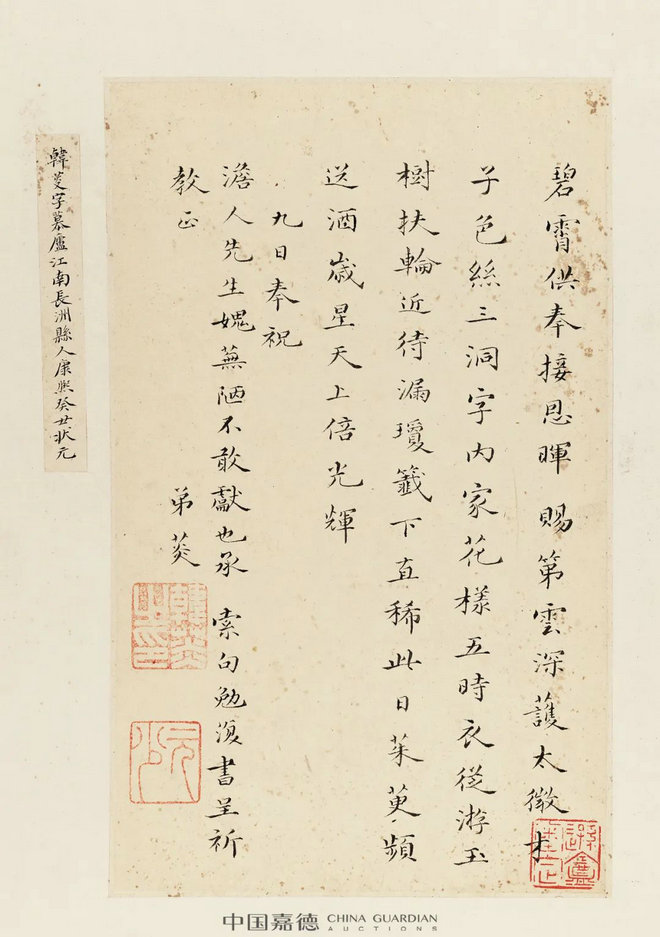 碧霄供奉接恩暉 賜第雲深護太微才
子色絲三洞字内家花樣五時衣從游玉
樹扶輪近待漏瓊籤下直稀此日茱萸頻
送酒歲星天上倍光輝
九日奉祝
澹人先生媿蕪陋不敢獻也承 索句勉復書呈祈
教正 弟菼
元少
韓菼字慕廬江南長洲縣人康熙癸丑狀元
中国嘉德 CHINA GUARDIAN
AUCTIONS